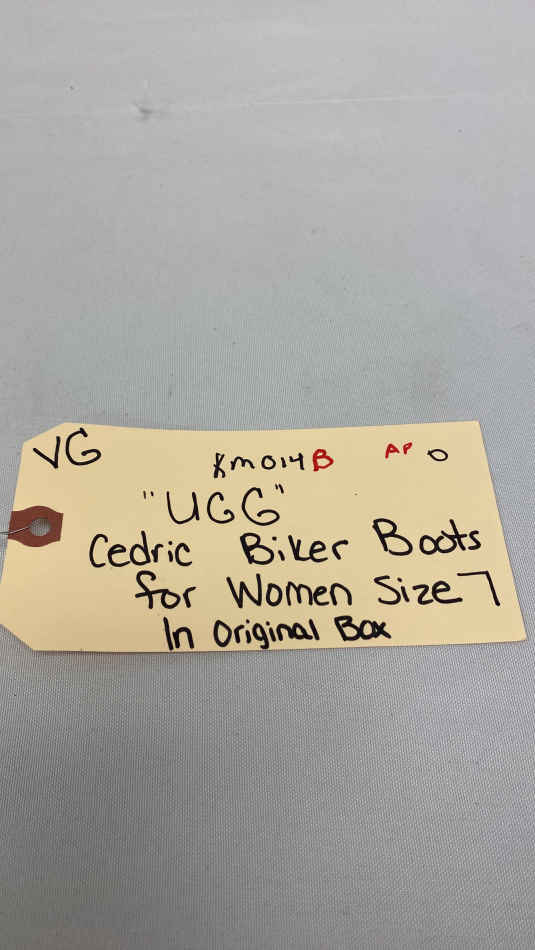 VG
KM014B AP O
"UGG"
Cedric Biker Boots
for Women Size 7
In Original Box